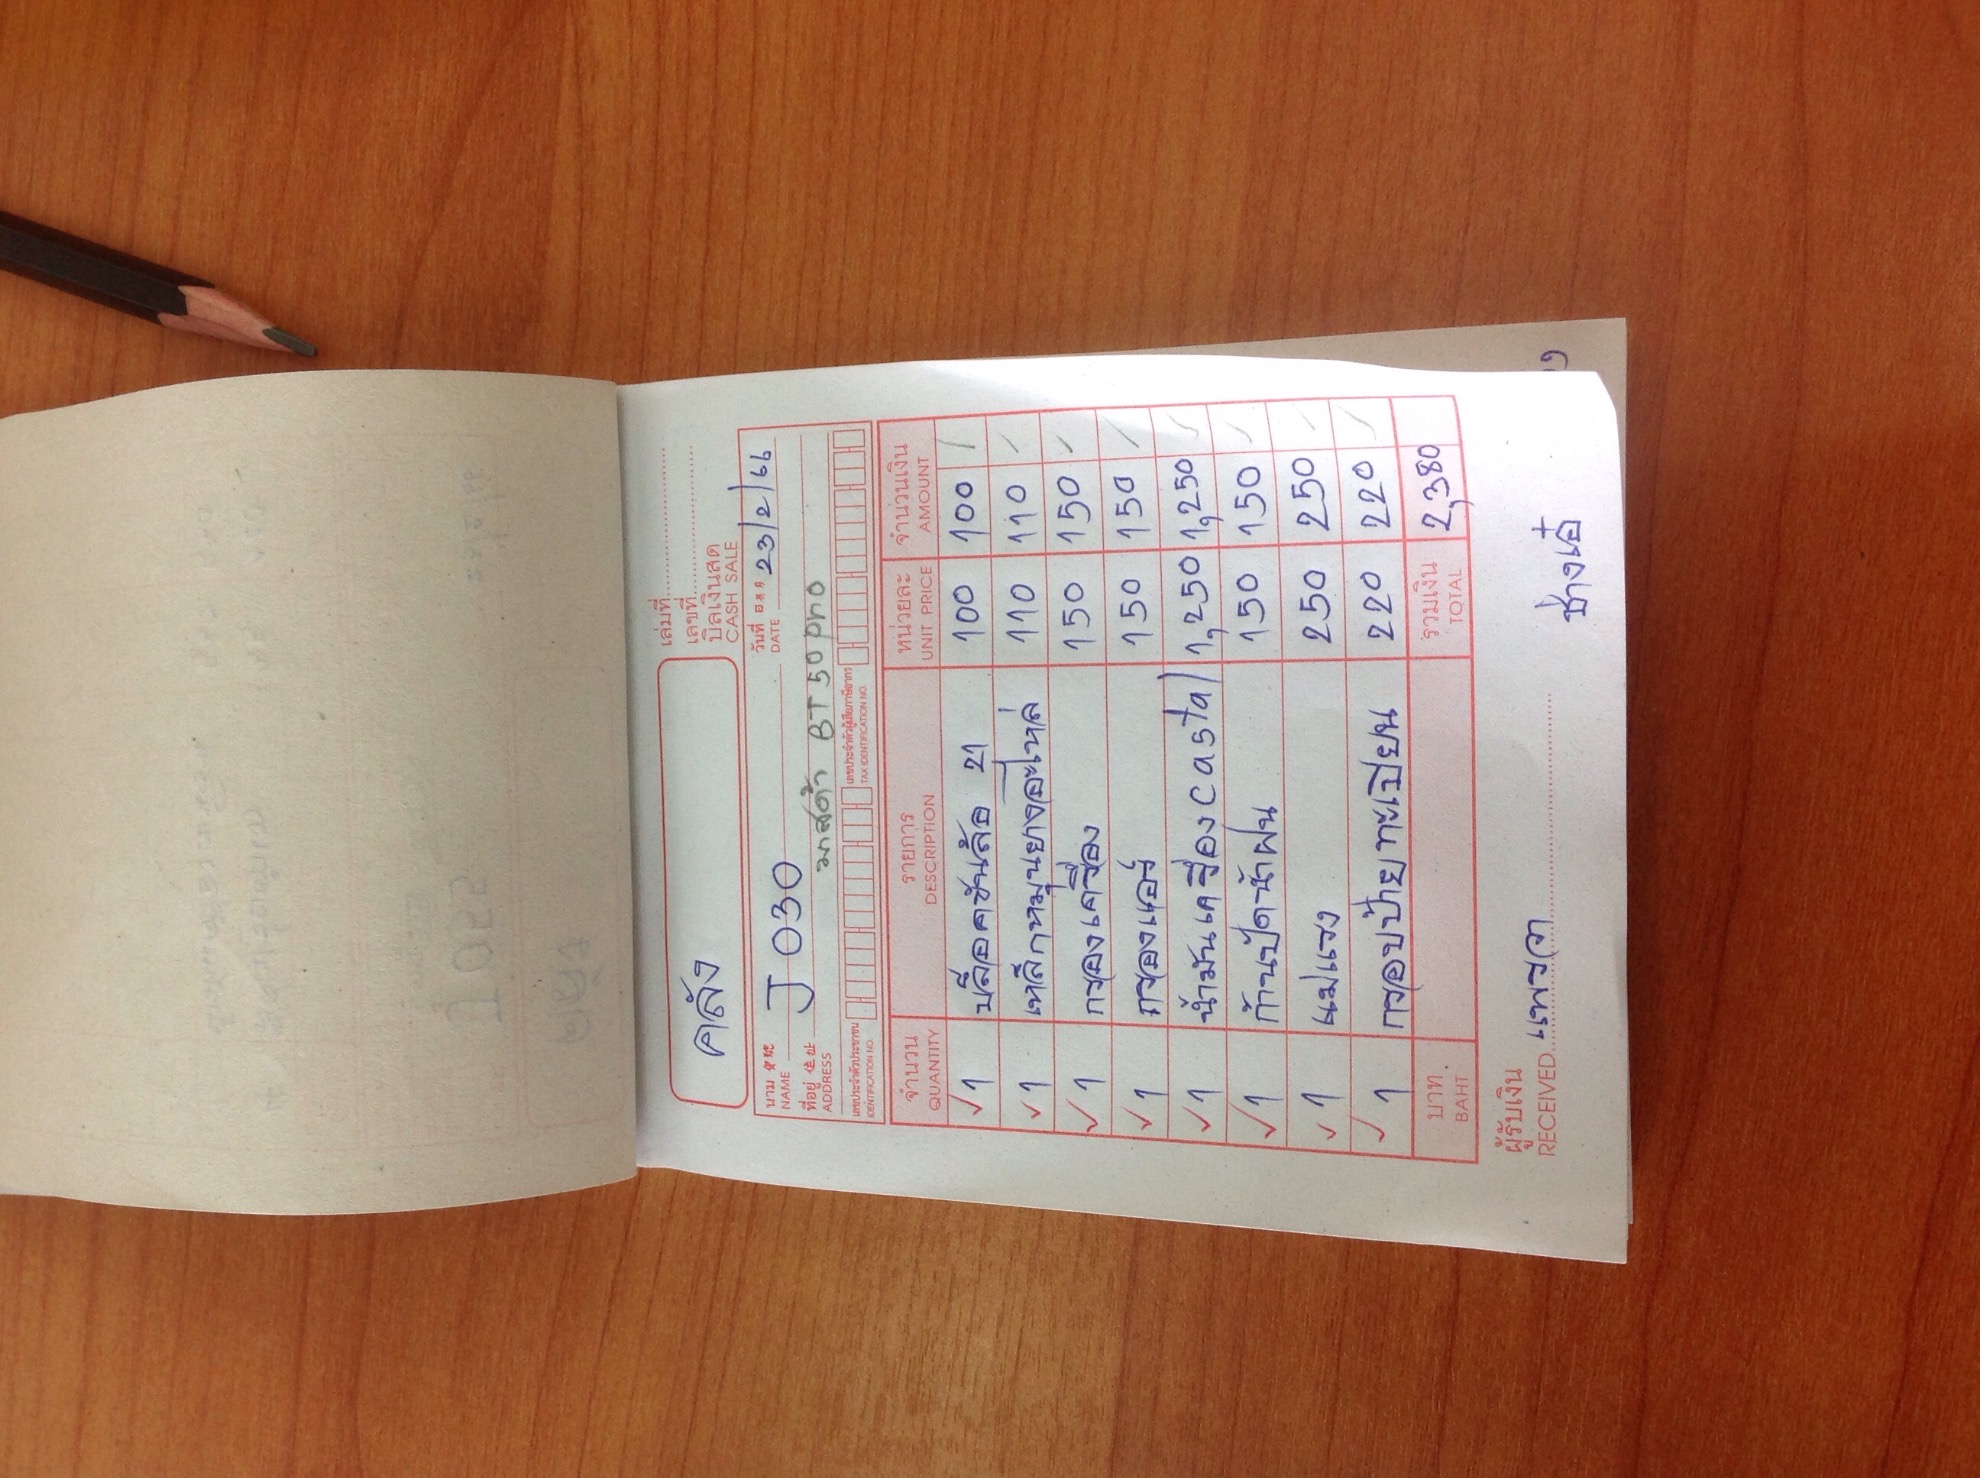 เล่มที่
เลขที่
คลัง
บิลเงินสด
CASH SALE
นาม J 030 วันที่ 23/2/66
NAME DATE
ที่อยู่ มาสด้า BT 50 pro
ADDRESS
เลขประจำตัวประชาชน เลขประจำตัวผู้เสียภาษีอากร
IDENTIFICATION NO. TAX IDENTIFICATION NO.
จำนวน รายการ หน่วยละ จำนวนเงิน
QUANTITY DESCRIPTION UNIT PRICE AMOUNT
✓ 1 บล๊อคขันล้อ 21 100 100
✓ 1 เหล็กหมุนยางอะไหล่ 110 110
✓ 1 กรองเครื่อง 150 150
✓ 1 กรองแอร์ 150 150
✓ 1 น้ำมันเครื่อง castal 1,250 1,250
✓ 1 ก้านปัดน้ำฝน 150 150
✓ 1 แม่แรง 250 250
✓ 1 กรอบป้ายทะเบียน 220 220
บาท รวมเงิน 2,380
BAHT TOTAL
ผู้รับเงิน
RECEIVED แพรวา
ช่างเอ๋